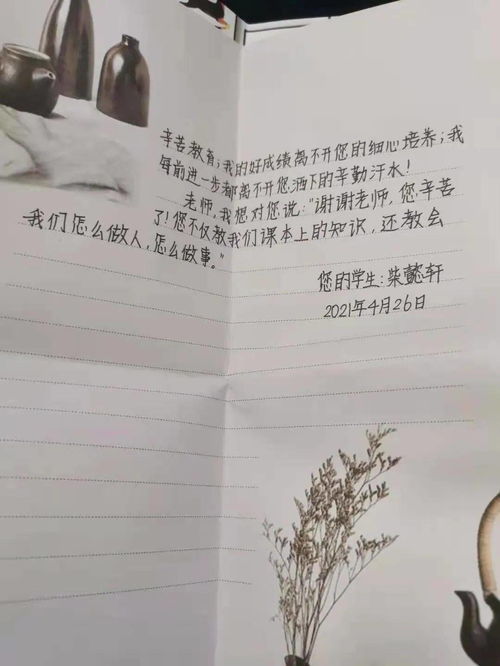 辛苦教育；我的好成绩离不开您的细心培养；我
每前进一步都离不开您洒下的辛勤汗水！
老师，我想对您说："谢谢老师，您辛苦
了！您不仅教我们课本上的知识，还教会
我们怎么做人，怎么做事。"
您的学生：柴懿轩
2021年4月26日